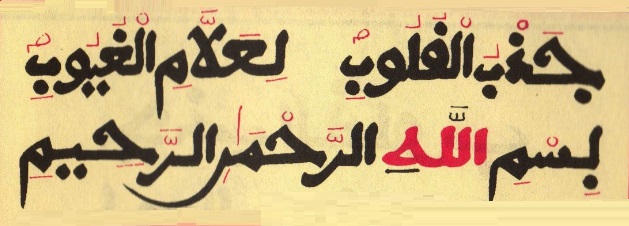 جَذْبُ الْقُلُوبِ لِعَلَّامِ الْغُيُوبِ
بِسْمِ اللَّهِ الرَّحْمَنِ الرَّحِيمِ